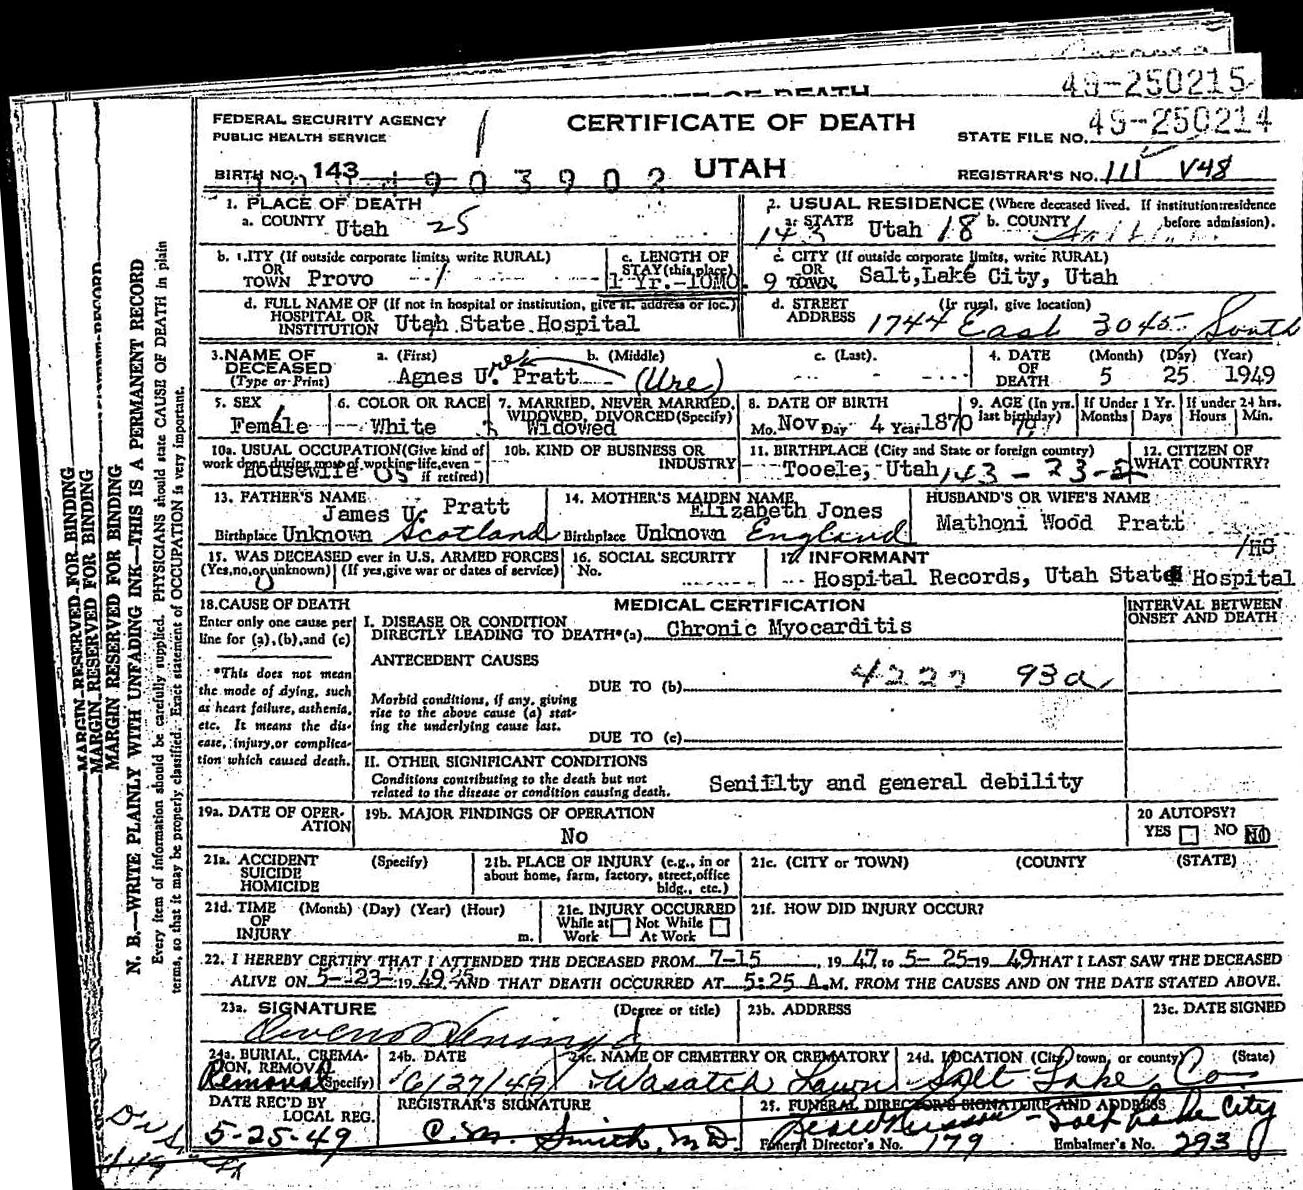 49-250215
FEDERAL SECURITY AGENCY
PUBLIC HEALTH SERVICE
CERTIFICATE OF DEATH
STATE FILE NO. 49-250214
BIRTH NO. 143
UTAH
REGISTRAR'S NO. 111 V48
1. PLACE OF DEATH
a. COUNTY Utah 25
2. USUAL RESIDENCE (Where deceased lived. If institution:residence before admission).
143 a. STATE Utah 18 b. COUNTY
b. CITY (If outside corporate limits, write RURAL)
OR TOWN Provo
c. LENGTH OF STAY (this place) 1 Yr.-10MO.
c. CITY (If outside corporate limits, write RURAL)
9 OR TOWN Salt,Lake City, Utah
d. FULL NAME OF (If not in hospital or institution, give st. address or loc.)
HOSPITAL OR INSTITUTION Utah State Hospital
d. STREET ADDRESS (If rural, give location)
1744 East 3045 South
3.NAME OF DECEASED (Type or Print)
a. (First) b. (Middle) c. (Last).
Agnes U. Pratt (Ure)
4. DATE OF DEATH (Month) (Day) (Year)
5 25 1949
5. SEX Female
6. COLOR OR RACE White
7. MARRIED, NEVER MARRIED, WIDOWED, DIVORCED(Specify) Widowed
8. DATE OF BIRTH
Mo. Nov Day 4 Year 1870
9. AGE (In yrs. last birthday)
If Under 1 Yr. Months Days
If under 24 hrs. Hours Min.
10a. USUAL OCCUPATION(Give kind of work done during most of working life, even if retired) Housewife
10b. KIND OF BUSINESS OR INDUSTRY
11. BIRTHPLACE (City and State or foreign country)
Tooele, Utah 143-23-2
12. CITIZEN OF WHAT COUNTRY?
13. FATHER'S NAME
James U. Pratt
Birthplace Unknown Scotland
14. MOTHER'S MAIDEN NAME
Elizabeth Jones
Birthplace Unknown England
HUSBAND'S OR WIFE'S NAME
Mathoni Wood Pratt
15. WAS DECEASED ever in U.S. ARMED FORCES
(Yes,no,or unknown) (If yes,give war or dates of service)
16. SOCIAL SECURITY No.
17. INFORMANT /HS
Hospital Records, Utah State Hospital
18.CAUSE OF DEATH
Enter only one cause per line for (a),(b),and (c)
*This does not mean the mode of dying, such as heart failure, asthenia, etc. It means the disease, injury,or complication which caused death.
MEDICAL CERTIFICATION
INTERVAL BETWEEN ONSET AND DEATH
I. DISEASE OR CONDITION
DIRECTLY LEADING TO DEATH*(a) Chronic Myocarditis
ANTECEDENT CAUSES
DUE TO (b) 4222 93a
Morbid conditions, if any, giving rise to the above cause (a) stating the underlying cause last.
DUE TO (c)
II. OTHER SIGNIFICANT CONDITIONS
Conditions contributing to the death but not related to the disease or condition causing death.
Seniilty and general debility
19a. DATE OF OPERATION
19b. MAJOR FINDINGS OF OPERATION
No
20 AUTOPSY?
YES NO
21a. ACCIDENT SUICIDE HOMICIDE (Specify)
21b. PLACE OF INJURY (e.g., in or about home, farm, factory, street,office bldg., etc.)
21c. (CITY or TOWN) (COUNTY (STATE)
21d. TIME OF INJURY (Month) (Day) (Year) (Hour) m.
21e. INJURY OCCURRED
While at Work Not While At Work
21f. HOW DID INJURY OCCUR?
22. I HEREBY CERTIFY THAT I ATTENDED THE DECEASED FROM 7-15 19 47 to 5- 25-19 49 THAT I LAST SAW THE DECEASED
ALIVE ON 5-23- 19 49 AND THAT DEATH OCCURRED AT 5:25 A.M. FROM THE CAUSES AND ON THE DATE STATED ABOVE.
23a. SIGNATURE (Degree or title)
23b. ADDRESS
23c. DATE SIGNED
24a. BURIAL, CREMATION, REMOVAL (Specify) Removal
24b. DATE 6/27/49
24c. NAME OF CEMETERY OR CREMATORY
Wasatch Lawn
24d. LOCATION (City, town, or county) (State)
Salt Lake Co
DATE REC'D BY LOCAL REG.
5-25-49
REGISTRAR'S SIGNATURE
C. M. Smith, M D.
25. FUNERAL DIRECTOR'S SIGNATURE AND ADDRESS
Salt Lake City
Funeral Director's No. 179 Embalmer's No. 293
MARGIN RESERVED FOR BINDING
MARGIN RESERVED FOR BINDING
MARGIN RESERVED FOR BINDING
N. B.—WRITE PLAINLY WITH UNFADING INK—THIS IS A PERMANENT RECORD
Every item of information should be carefully supplied. PHYSICIANS should state CAUSE OF DEATH in plain
terms, so that it may be properly classified. Exact statement of OCCUPATION is very important.